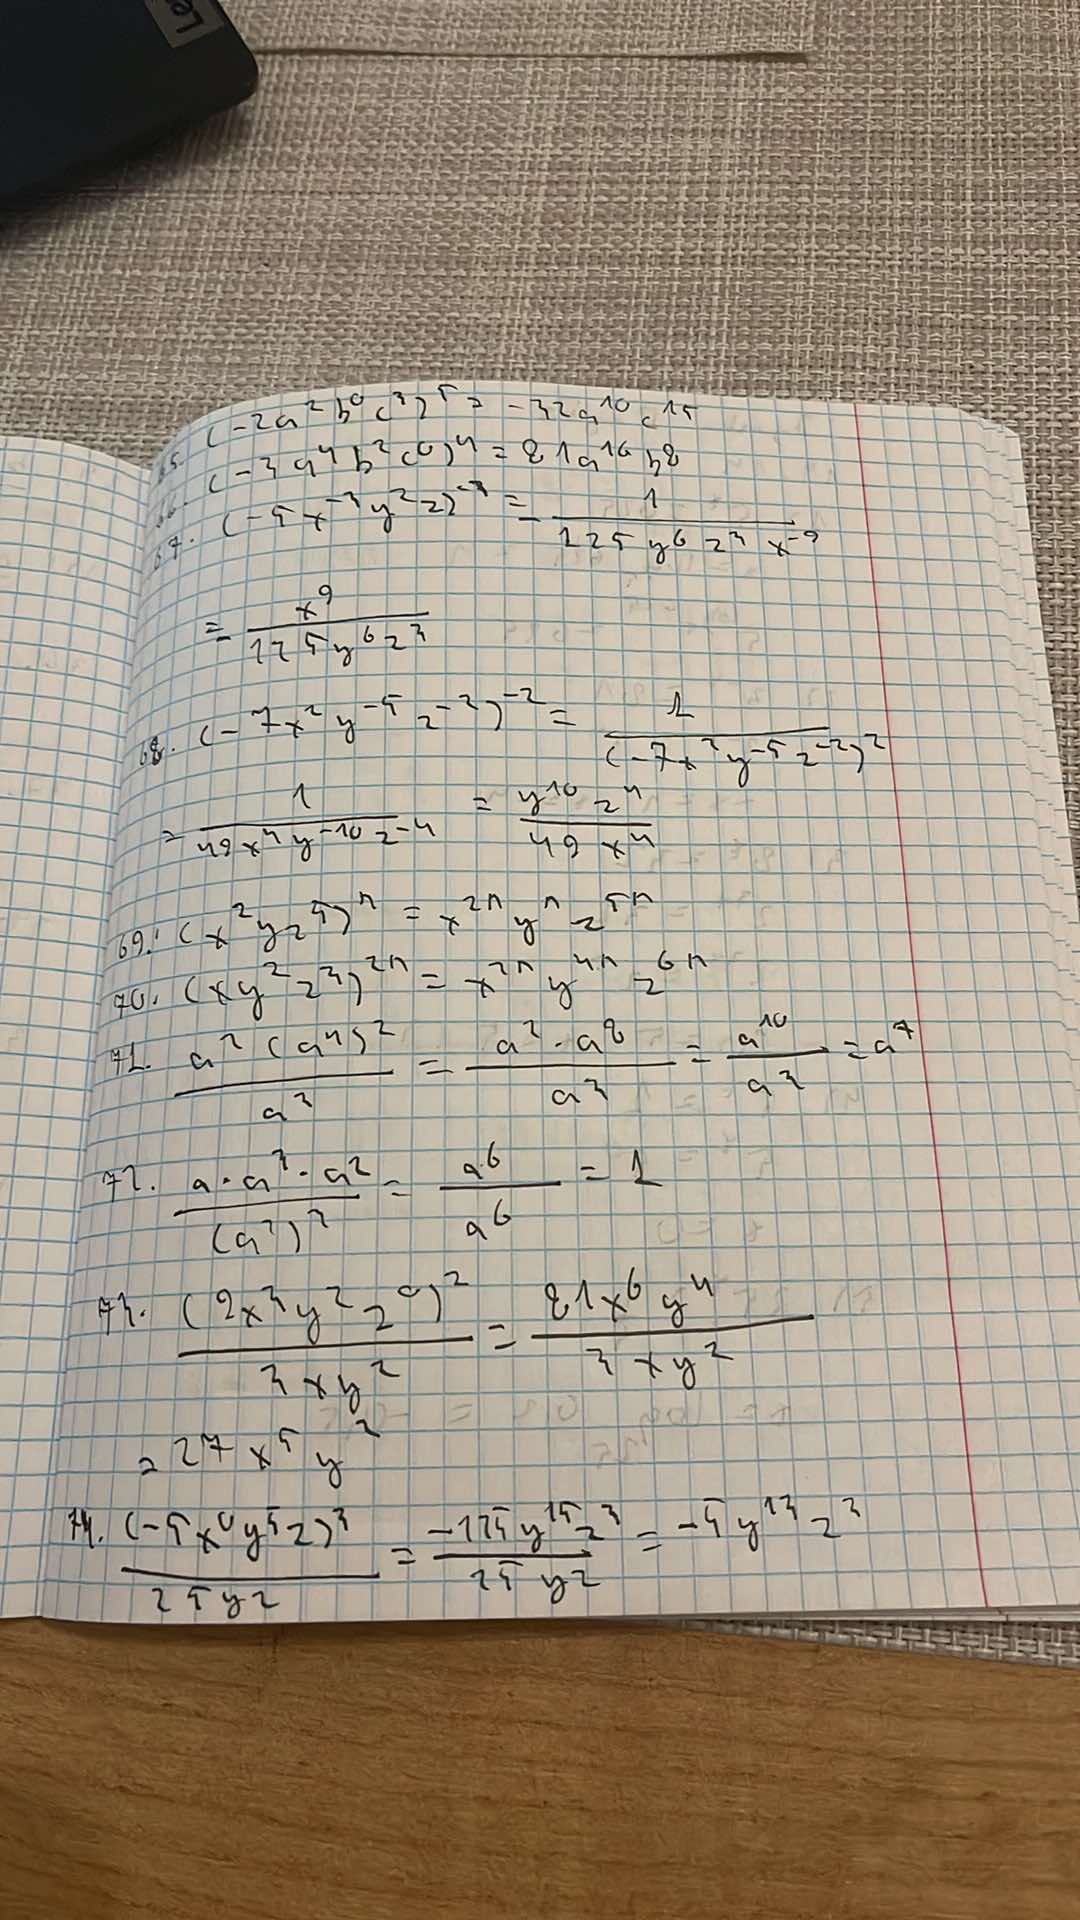 Le
65. (-2a²b⁰c³)⁵ = -32a¹⁰c¹⁵
66. (-3a⁴b²c⁰)⁴ = 81a¹⁶b⁸
67. (-5x⁻³y²z)⁻³ = -1/(125y⁶z³x⁻⁹)
= -x⁹/(125y⁶z³)
68. (-7x²y⁻⁵z⁻²)⁻² = 1/(-7x²y⁻⁵z⁻²)²
= 1/(49x⁴y⁻¹⁰z⁻⁴) = y¹⁰z⁴/(49x⁴)
69. (x²yz⁵)ⁿ = x²ⁿyⁿz⁵ⁿ
70. (xy²z³)²ⁿ = x²ⁿy⁴ⁿz⁶ⁿ
71. a²(a⁴)²/a³ = a²·a⁸/a³ = a¹⁰/a³ = a⁷
72. a·a³·a²/(a²)³ = a⁶/a⁶ = 1
73. (9x³y²z⁰)²/(3xy²) = 81x⁶y⁴/(3xy²)
= 27x⁵y²
74. (-5x⁰y⁵z)³/(25y²) = -125y¹⁵z³/(25y²) = -5y¹³z³